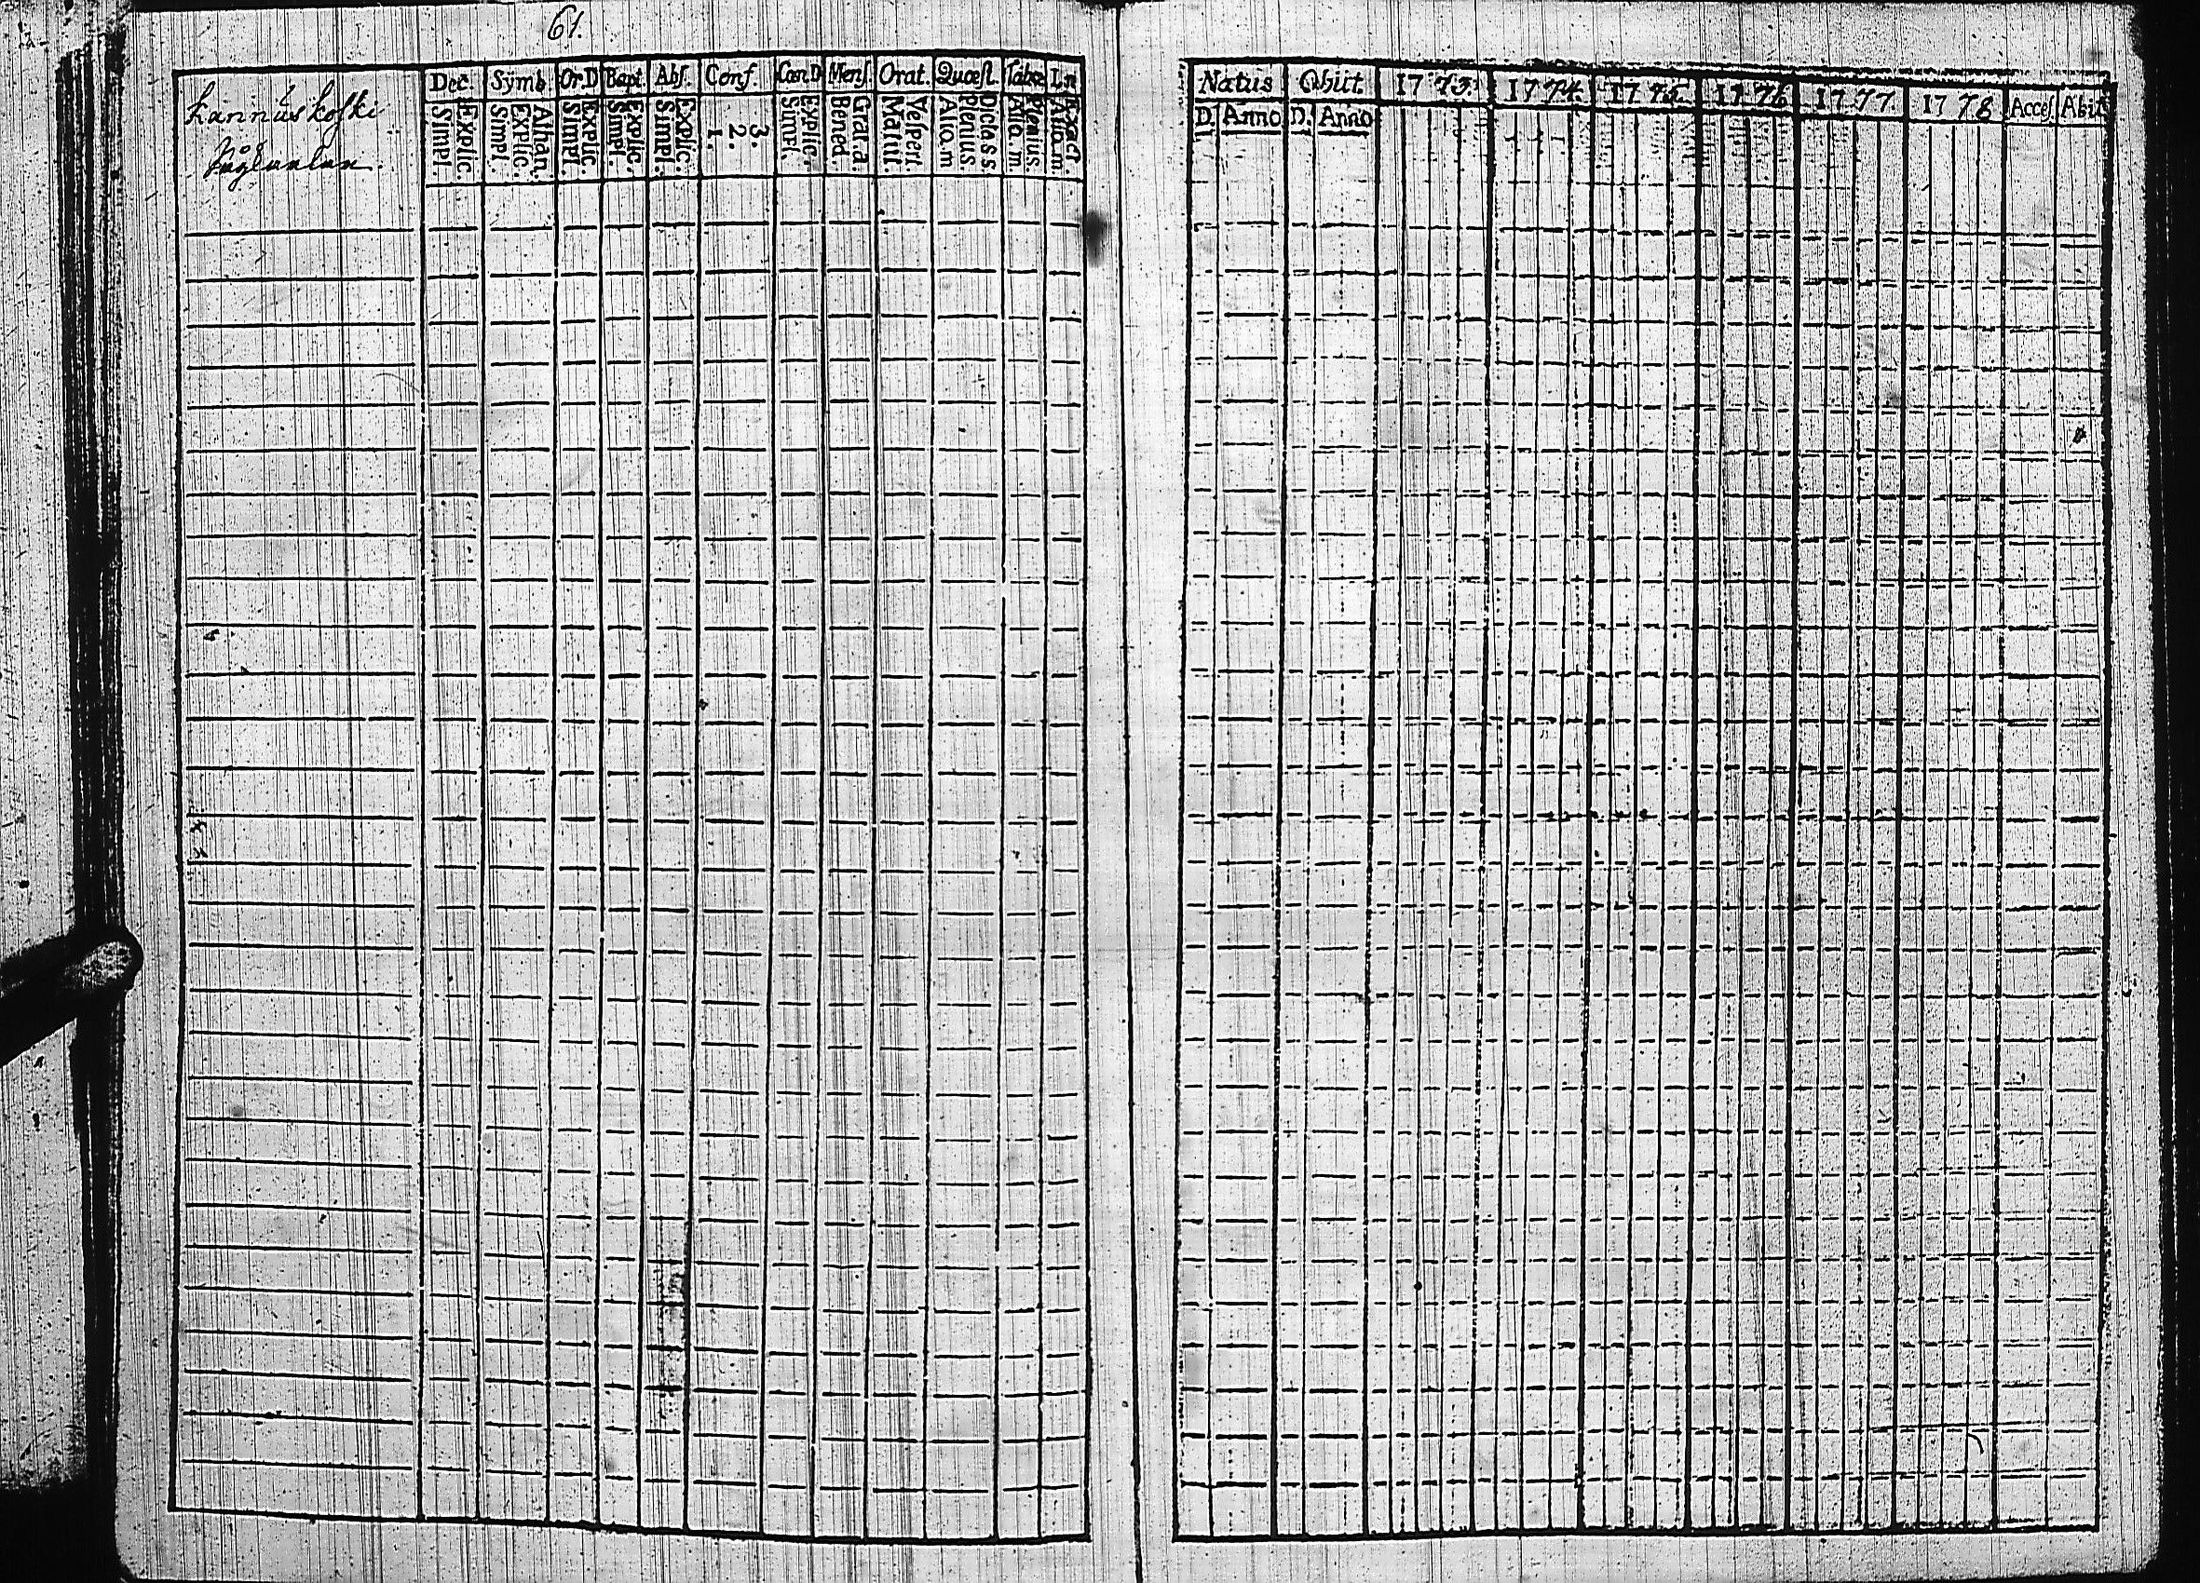 61.
Dec. Symb. Or.D Bapt. Abs. Conf. Cœn.D Mens. Orat. Quæst. Tabœ Ln
Kannuskoski
Simpl. Explic. Simpl. Explic. Athan. Simpl. Explic. Simpl. Explic. Simpl. Explic. 1. 2. 3. Simpl. Explic. Bened. Grat.a. Matut. Vespert. Alio.m Plenius. Dicta s s. Alio.m Plenius. Alio.m. Exact
Natus Obiit. 1773. 1774. 1775. 1776. 1777. 1778 Acces. Abiit
D. Anno D. Anno